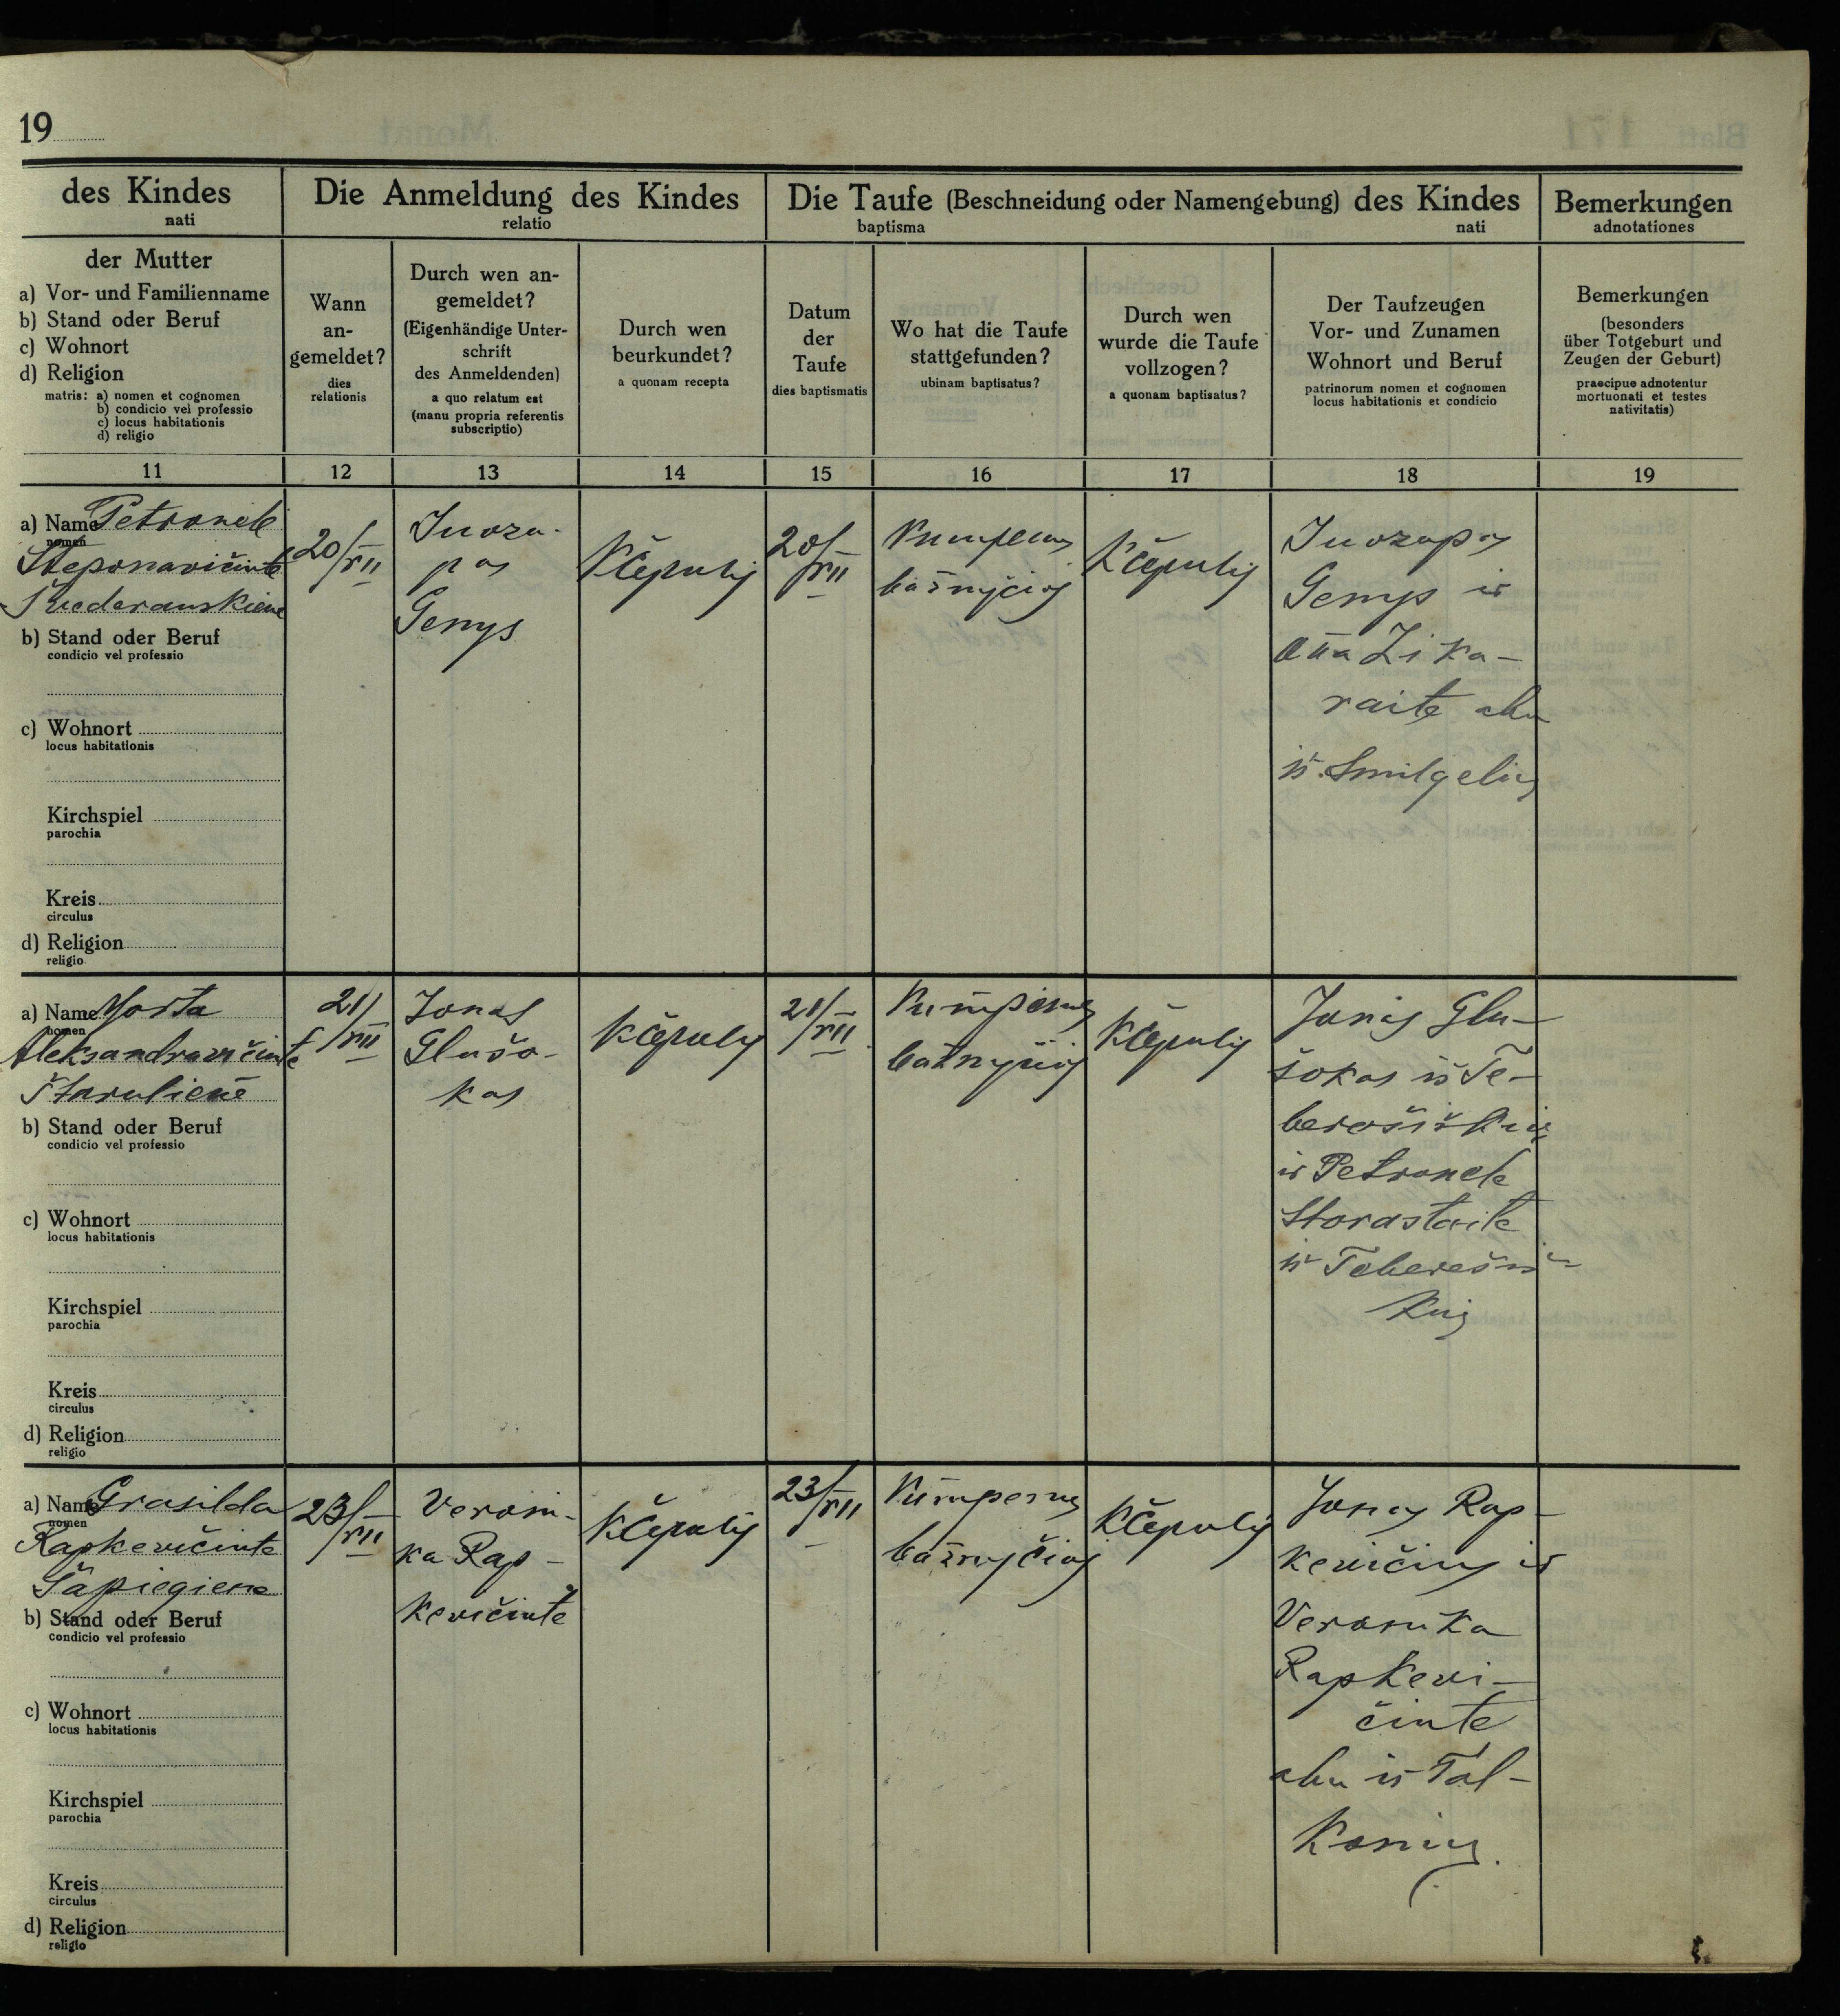 19
des Kindes
nati
Die Anmeldung des Kindes
relatio
Die Taufe (Beschneidung oder Namengebung) des Kindes
baptisma nati
Bemerkungen
adnotationes
der Mutter
a) Vor- und Familienname
b) Stand oder Beruf
c) Wohnort
d) Religion
matris: a) nomen et cognomen
b) condicio vel professio
c) locus habitationis
d) religio
Wann
an-
gemeldet?
dies
relationis
Durch wen an-
gemeldet?
(Eigenhändige Unter-
schrift
des Anmeldenden)
a quo relatum est
(manu propria referentis
subscriptio)
Durch wen
beurkundet?
a quonam recepta
Datum
der
Taufe
dies baptismatis
Wo hat die Taufe
stattgefunden?
ubinam baptisatus?
Durch wen
wurde die Taufe
vollzogen?
a quonam baptisatus?
Der Taufzeugen
Vor- und Zunamen
Wohnort und Beruf
patrinorum nomen et cognomen
locus habitationis et condicio
Bemerkungen
(besonders
über Totgeburt und
Zeugen der Geburt)
praecipue adnotentur
mortuonati et testes
nativitatis)
11 12 13 14 15 16 17 18 19
a) Name Petronelė
nomen
Steponavičiutė
b) Stand oder Beruf
condicio vel professio
c) Wohnort
locus habitationis
Kirchspiel
parochia
Kreis
circulus
d) Religion
religio
20/VII
Juoza-
pas
Genys
K Čepulis
20/VII
bažnyčioj
K Čepulis
Juozapas
Genys ir
Ona Zika-
raitė abu
iš Smilgelių
a) Name Morta
nomen
Aleksandravičiutė
b) Stand oder Beruf
condicio vel professio
c) Wohnort
locus habitationis
Kirchspiel
parochia
Kreis
circulus
d) Religion
religio
21/VII
Jonas
Glušo-
kas
K Čepulis
21/VII
bažnyčioj
K Čepulis
Jonas Glu-
šokas iš Te-
ir Petronelė
Storastaitė
a) Name Grasilda
nomen
Rapkevičiutė
Sapiegienė
b) Stand oder Beruf
condicio vel professio
c) Wohnort
locus habitationis
Kirchspiel
parochia
Kreis
circulus
d) Religion
religio
23/VII
Veroni-
ka Rap-
kevičiutė
K Čepulis
23/VII
bažnyčioj
K Čepulis
Jonas Rap-
kevičius ir
Veronika
Rapkevi-
čiutė
abu iš Tal-
konių.